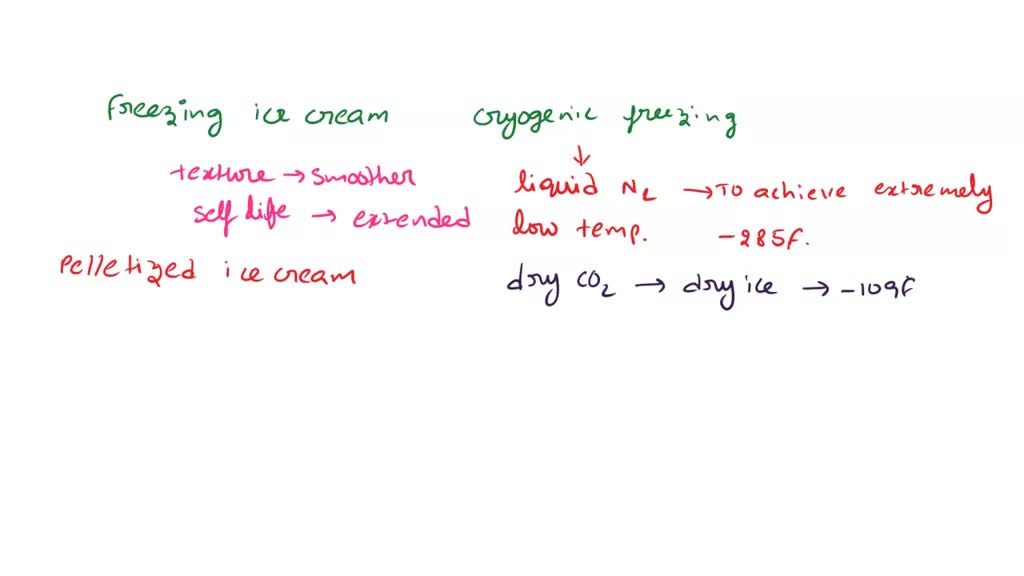 freezing ice cream
texture → smoother
self life → extended
Pelletized ice cream
cryogenic freezing
↓
liquid N2 → To achieve extremely
low temp. -285F.
dry CO2 → dry ice → -109F